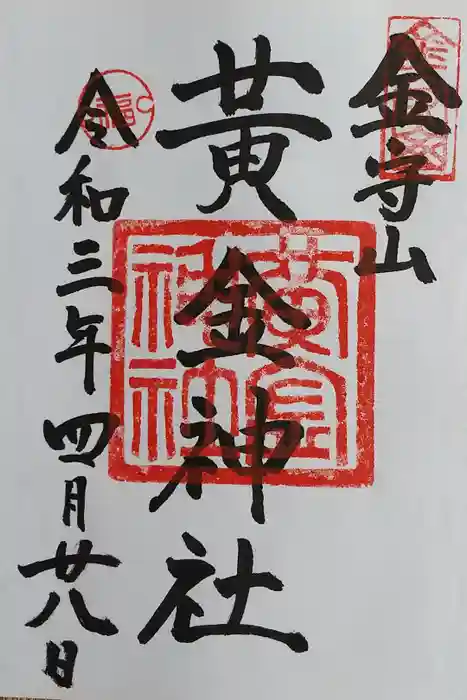 金守山
黄金神社
令和三年四月廿八日
福
黄金神社